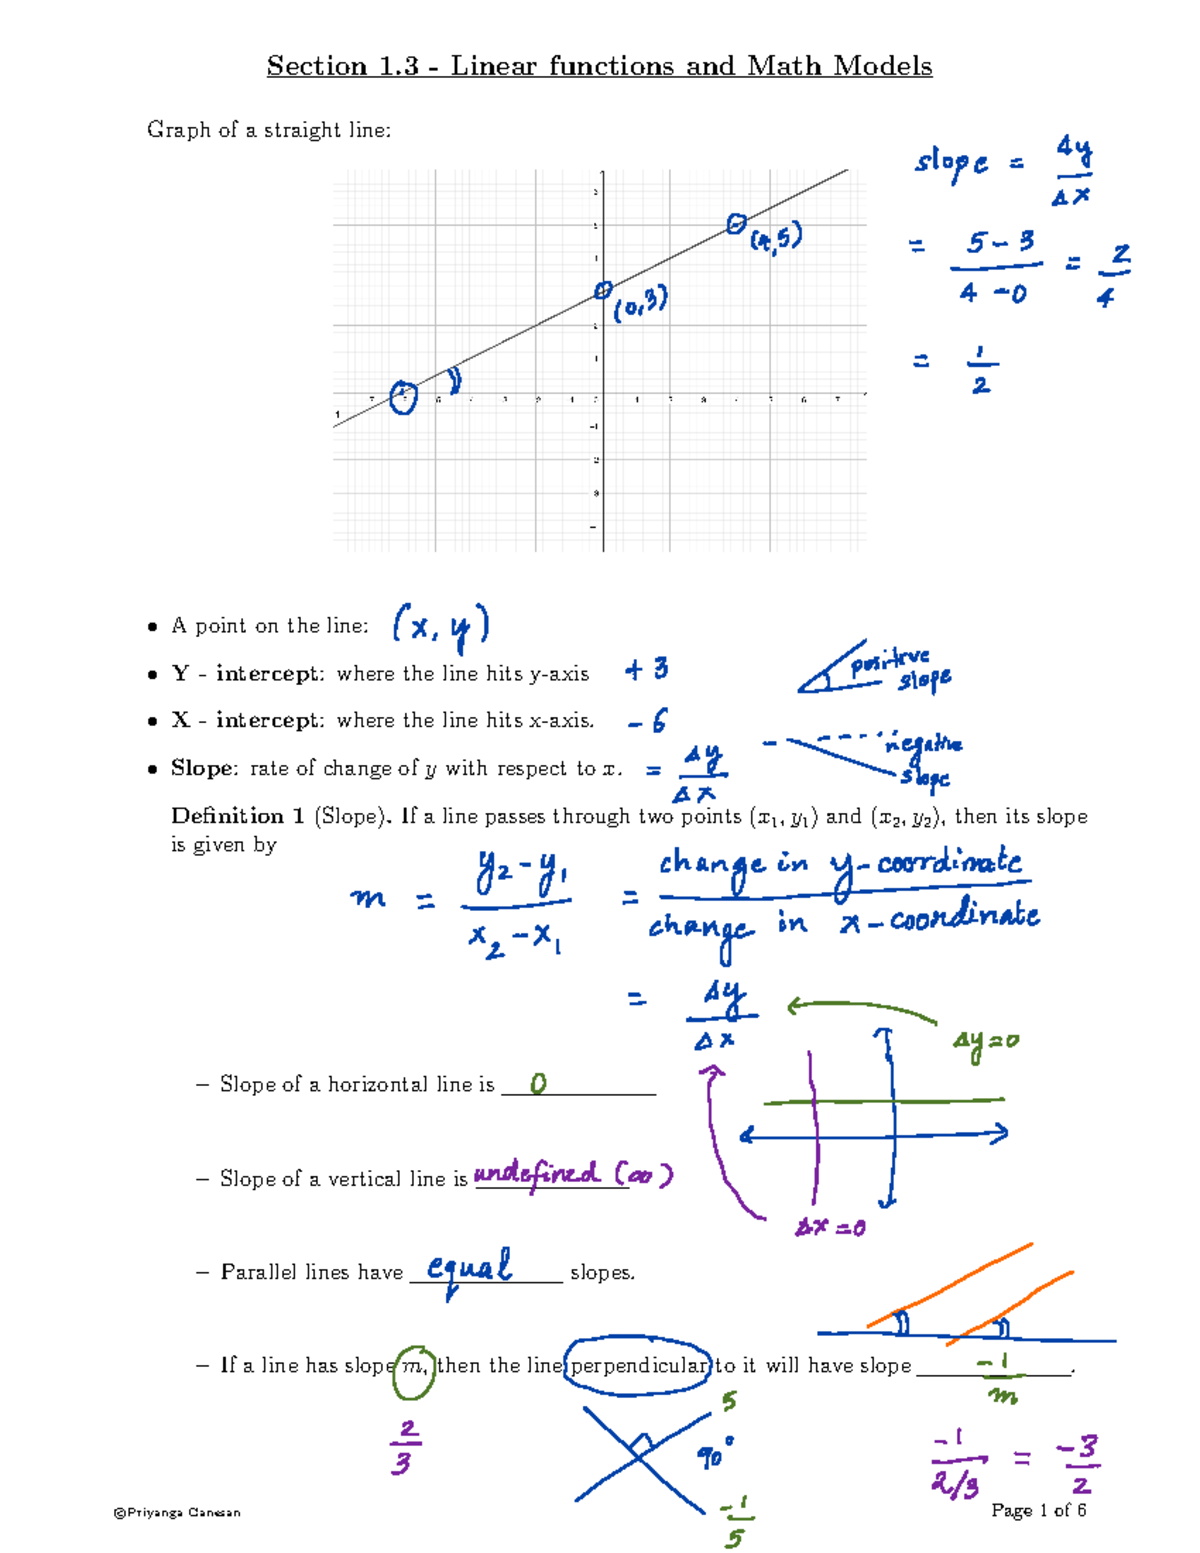 Section 1.3 - Linear functions and Math Models
Graph of a straight line:
slope = Δy/Δx
= (5-3)/(4-0) = 2/4
= 1/2
(4,5)
(0,3)
• A point on the line: (x, y)
• Y - intercept: where the line hits y-axis +3
positive slope
• X - intercept: where the line hits x-axis. -6
negative slope
• Slope: rate of change of y with respect to x. = Δy/Δx
Definition 1 (Slope). If a line passes through two points (x₁, y₁) and (x₂, y₂), then its slope
is given by
m = (y₂-y₁)/(x₂-x₁) = change in y-coordinate/change in x-coordinate
= Δy/Δx
Δy=0
– Slope of a horizontal line is 0
– Slope of a vertical line is undefined (∞)
Δx=0
– Parallel lines have equal slopes.
– If a line has slope m, then the line perpendicular to it will have slope -1/m.
2/3
5
90°
-1/5
-1/(2/3) = -3/2
©Priyanga Ganesan
Page 1 of 6